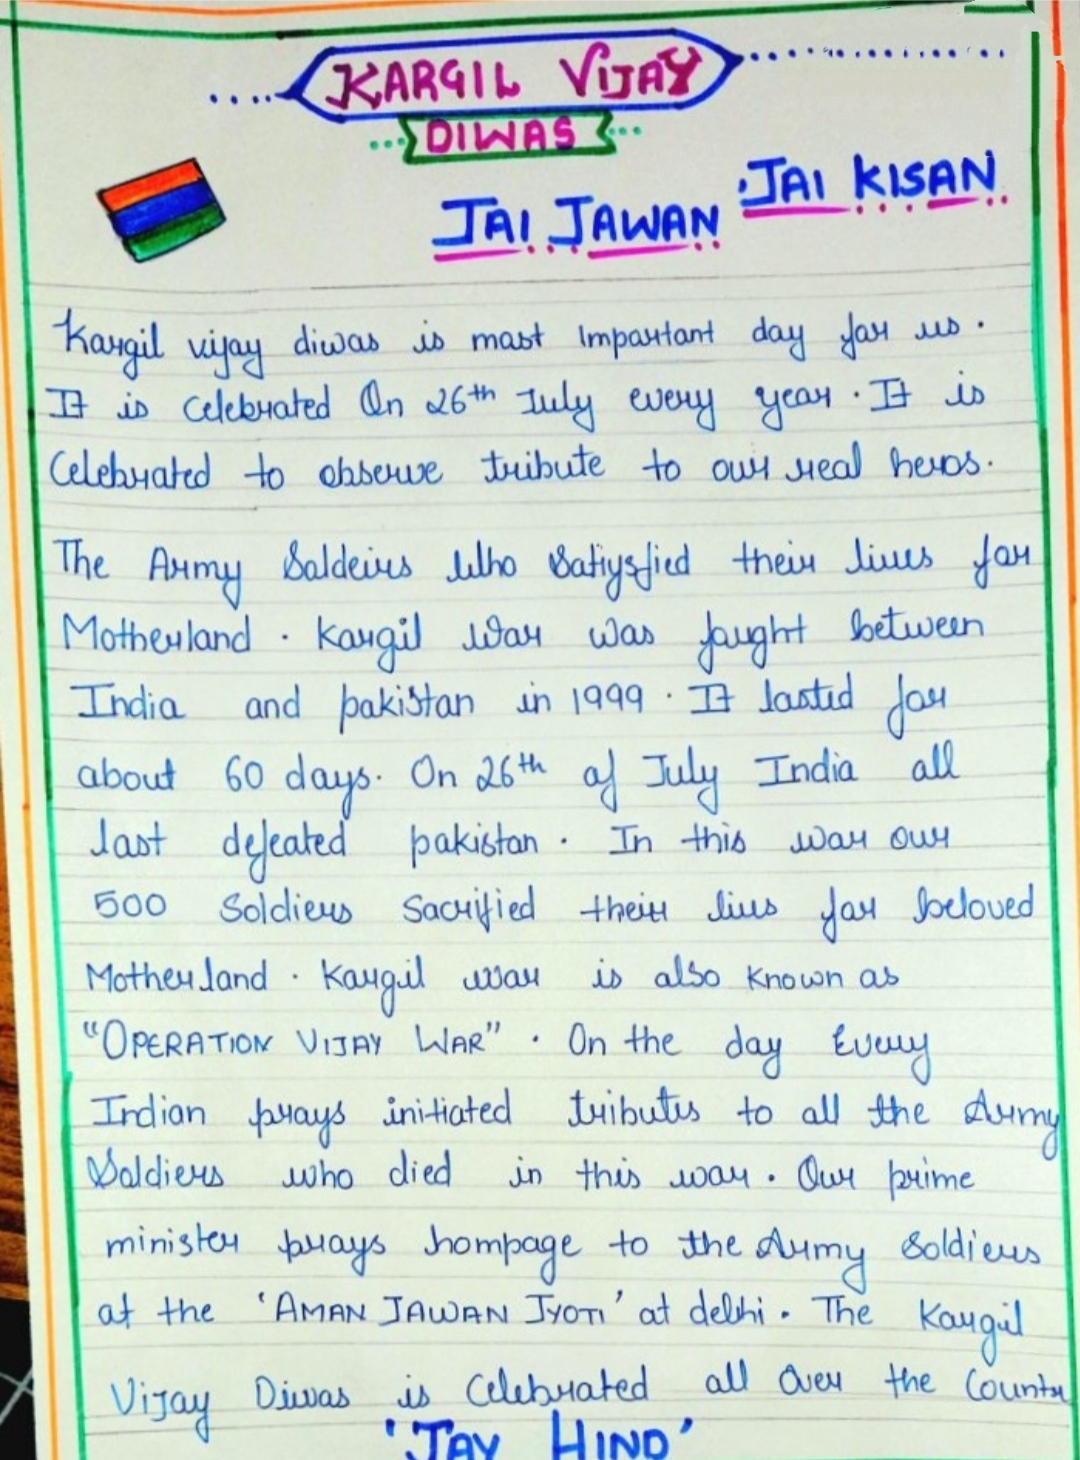 KARGIL VIJAY
DIWAS
JAI JAWAN JAI KISAN
Kargil vijay diwas is most Important day for us.
It is Celebrated On 26th July every year. It is
Celebrated to observe tribute to our real heros.
The Army Soldeirs Who Satiysfied their lives for
Motherland. Kargil War was fought between
India and pakistan in 1999. It lasted for
about 60 days. On 26th of July India all
last defeated pakistan. In this war our
500 Soldiers Sacrified their lives for beloved
Motherland. Kargil war is also known as
"OPERATION VIJAY WAR". On the day Every
Indian prays initiated tributes to all the Army
Soldiers who died in this war. Our prime
minister prays hompage to the Army Soldiers
at the 'AMAN JAWAN JYOTI' at delhi. The Kargil
Vijay Diwas is Celebrated all Over the Countr
'JAY HIND'